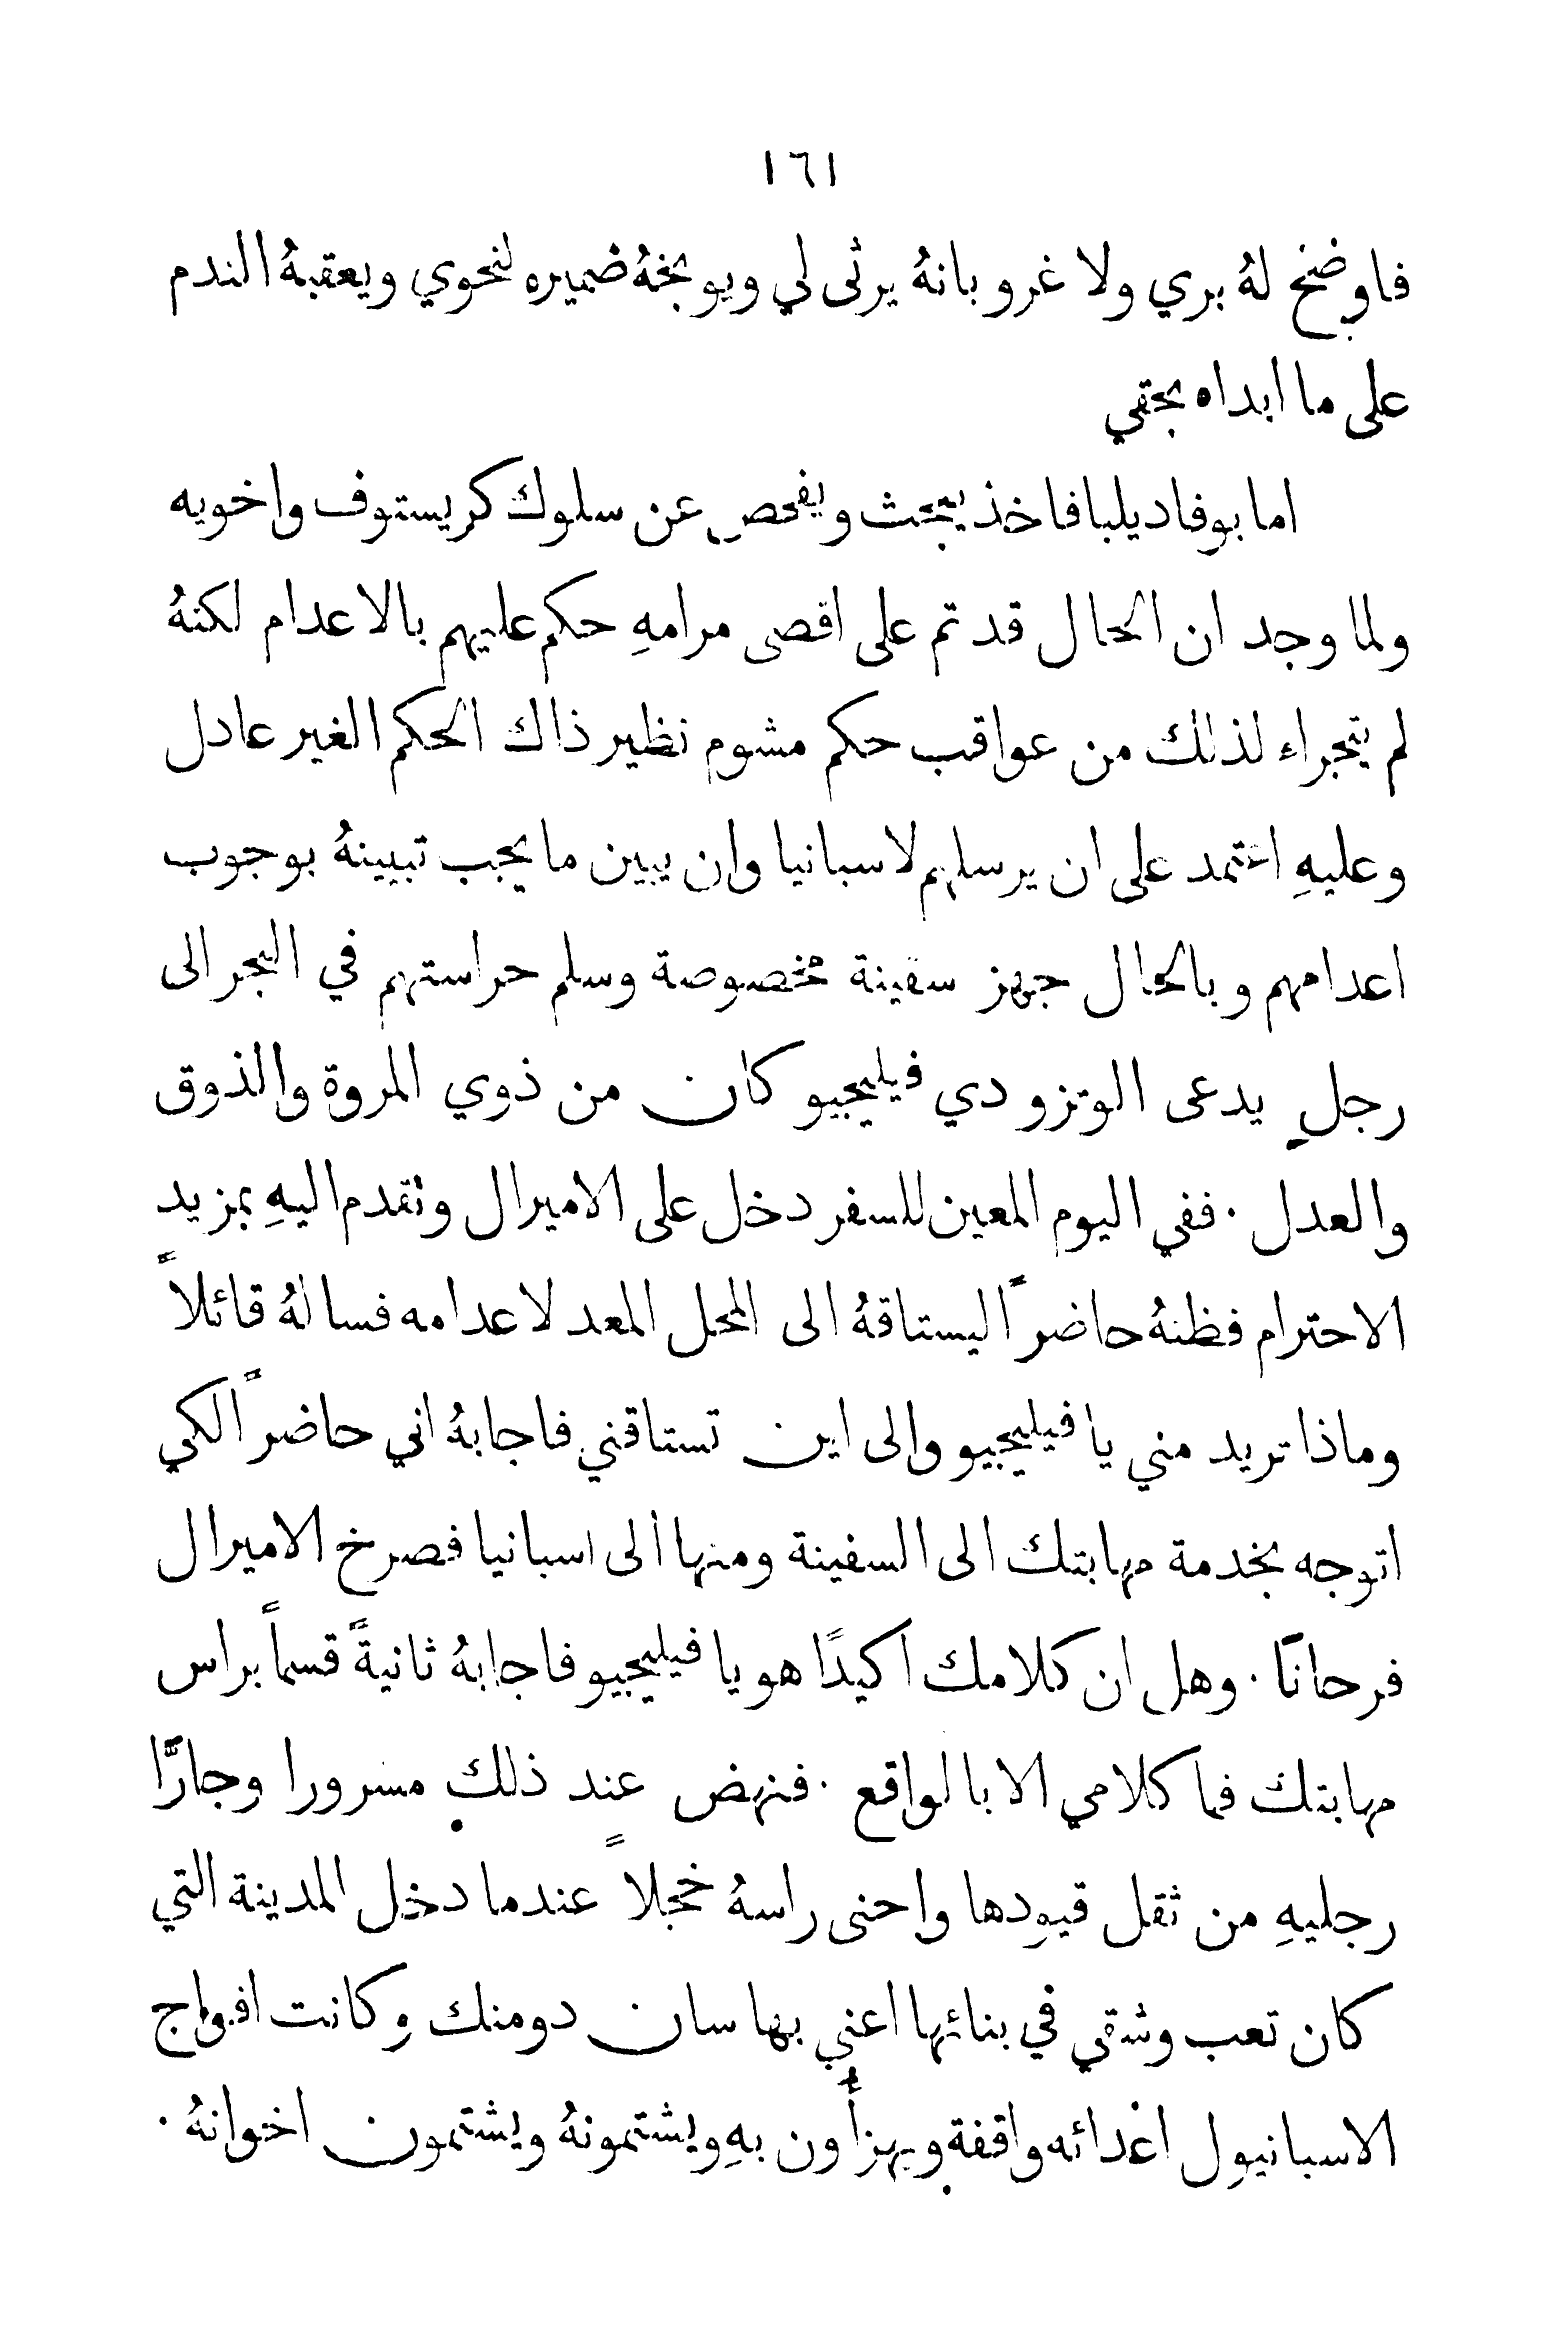 ١٦١
فاوضح لهُ بري ولا غرو بانهُ يرثى لي ويوبخهُ ضميره لنحوي ويعقبهُ الندم
على ما ابداه بحقي
اما بوفاديلبا فاخذ يبحث ويفحص عن سلوك كريستوف واخويه
ولما وجد ان الحال قد تم على اقصى مرامهِ حكم عليهم بالاعدام لكنهُ
لم يتجراء لذلك من عواقب حكم مشوم نظير ذاك الحكم الغير عادل
وعليهِ اعتمد على ان يرسلهم لاسبانيا وان يبين ما يجب تبيينهُ بوجوب
اعدامهم وبالحال جهز سفينة مخصوصة وسلم حراستهم في البحر الى
رجلٍ يدعى الوتزو دي فيليجيو كان من ذوي المروة والذوق
والعدل . ففي اليوم المعين للسفر دخل على الاميرال وتقدم اليهِ بمزيد
الاحترام فظنهُ حاضراً ليستاقهُ الى المحل المعد لاعدامه فسالهُ قائلاً
وماذا تريد مني يا فيليجيو والى اين تستاقني فاجابهُ اني حاضراً لكي
اتوجه بخدمة مهابتك الى السفينة ومنها الى اسبانيا فصرخ الاميرال
فرحانًا . وهل ان كلامك اكيدًا هو يا فيليجيو فاجابهُ ثانيةً قسماً براس
مهابتك فما كلامي الا بالواقع . فنهض عند ذلك مسرورا وجارًّا
رجليهِ من ثقل قيودها واحنى راسهُ خجلاً عندما دخل المدينة التي
كان تعب وشقي في بنائها اعني بها سان دومنك وكانت افواج
الاسبانيول اعدائه واقفة ويهزأون بهِ ويشتمونهُ ويشتمون اخوانهُ .